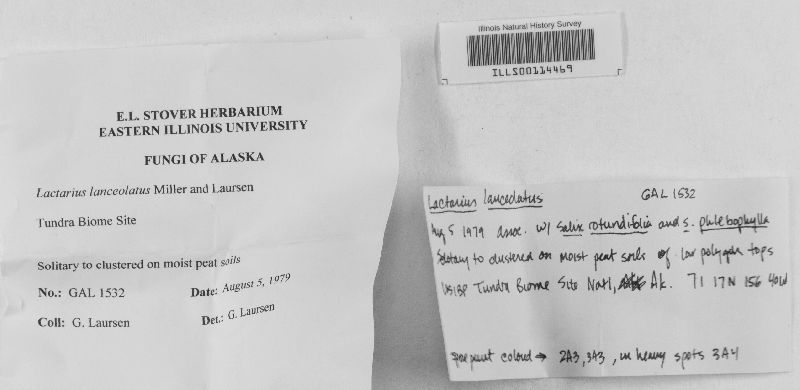 E.L. STOVER HERBARIUM
EASTERN ILLINOIS UNIVERSITY
FUNGI OF ALASKA
Lactarius lanceolatus Miller and Laursen
Tundra Biome Site
Solitary to clustered on moist peat soils
No.: GAL 1532 Date: August 5, 1979
Coll: G. Laursen Det.: G. Laursen
Illinois Natural History Survey
ILLS00114469
Lactarius lanceolatus GAL 1532
Aug 5 1979 assoc. w/ Salix rotundifolia and S. phlebophylla
Solitary to clustered on moist peat soils of low polygon tops
US IBP Tundra Biome Site Natl, Ak. 71 17N 156 40W
spore print colored → 2A3, 3A3, in heavy spots 3A4